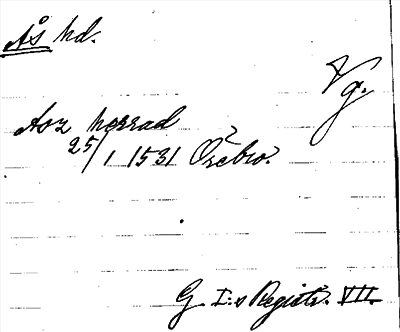 Ås hd.
Vg.
Asz herrad
25/1 1531 Örebro.
G. I:s Registr. VII.